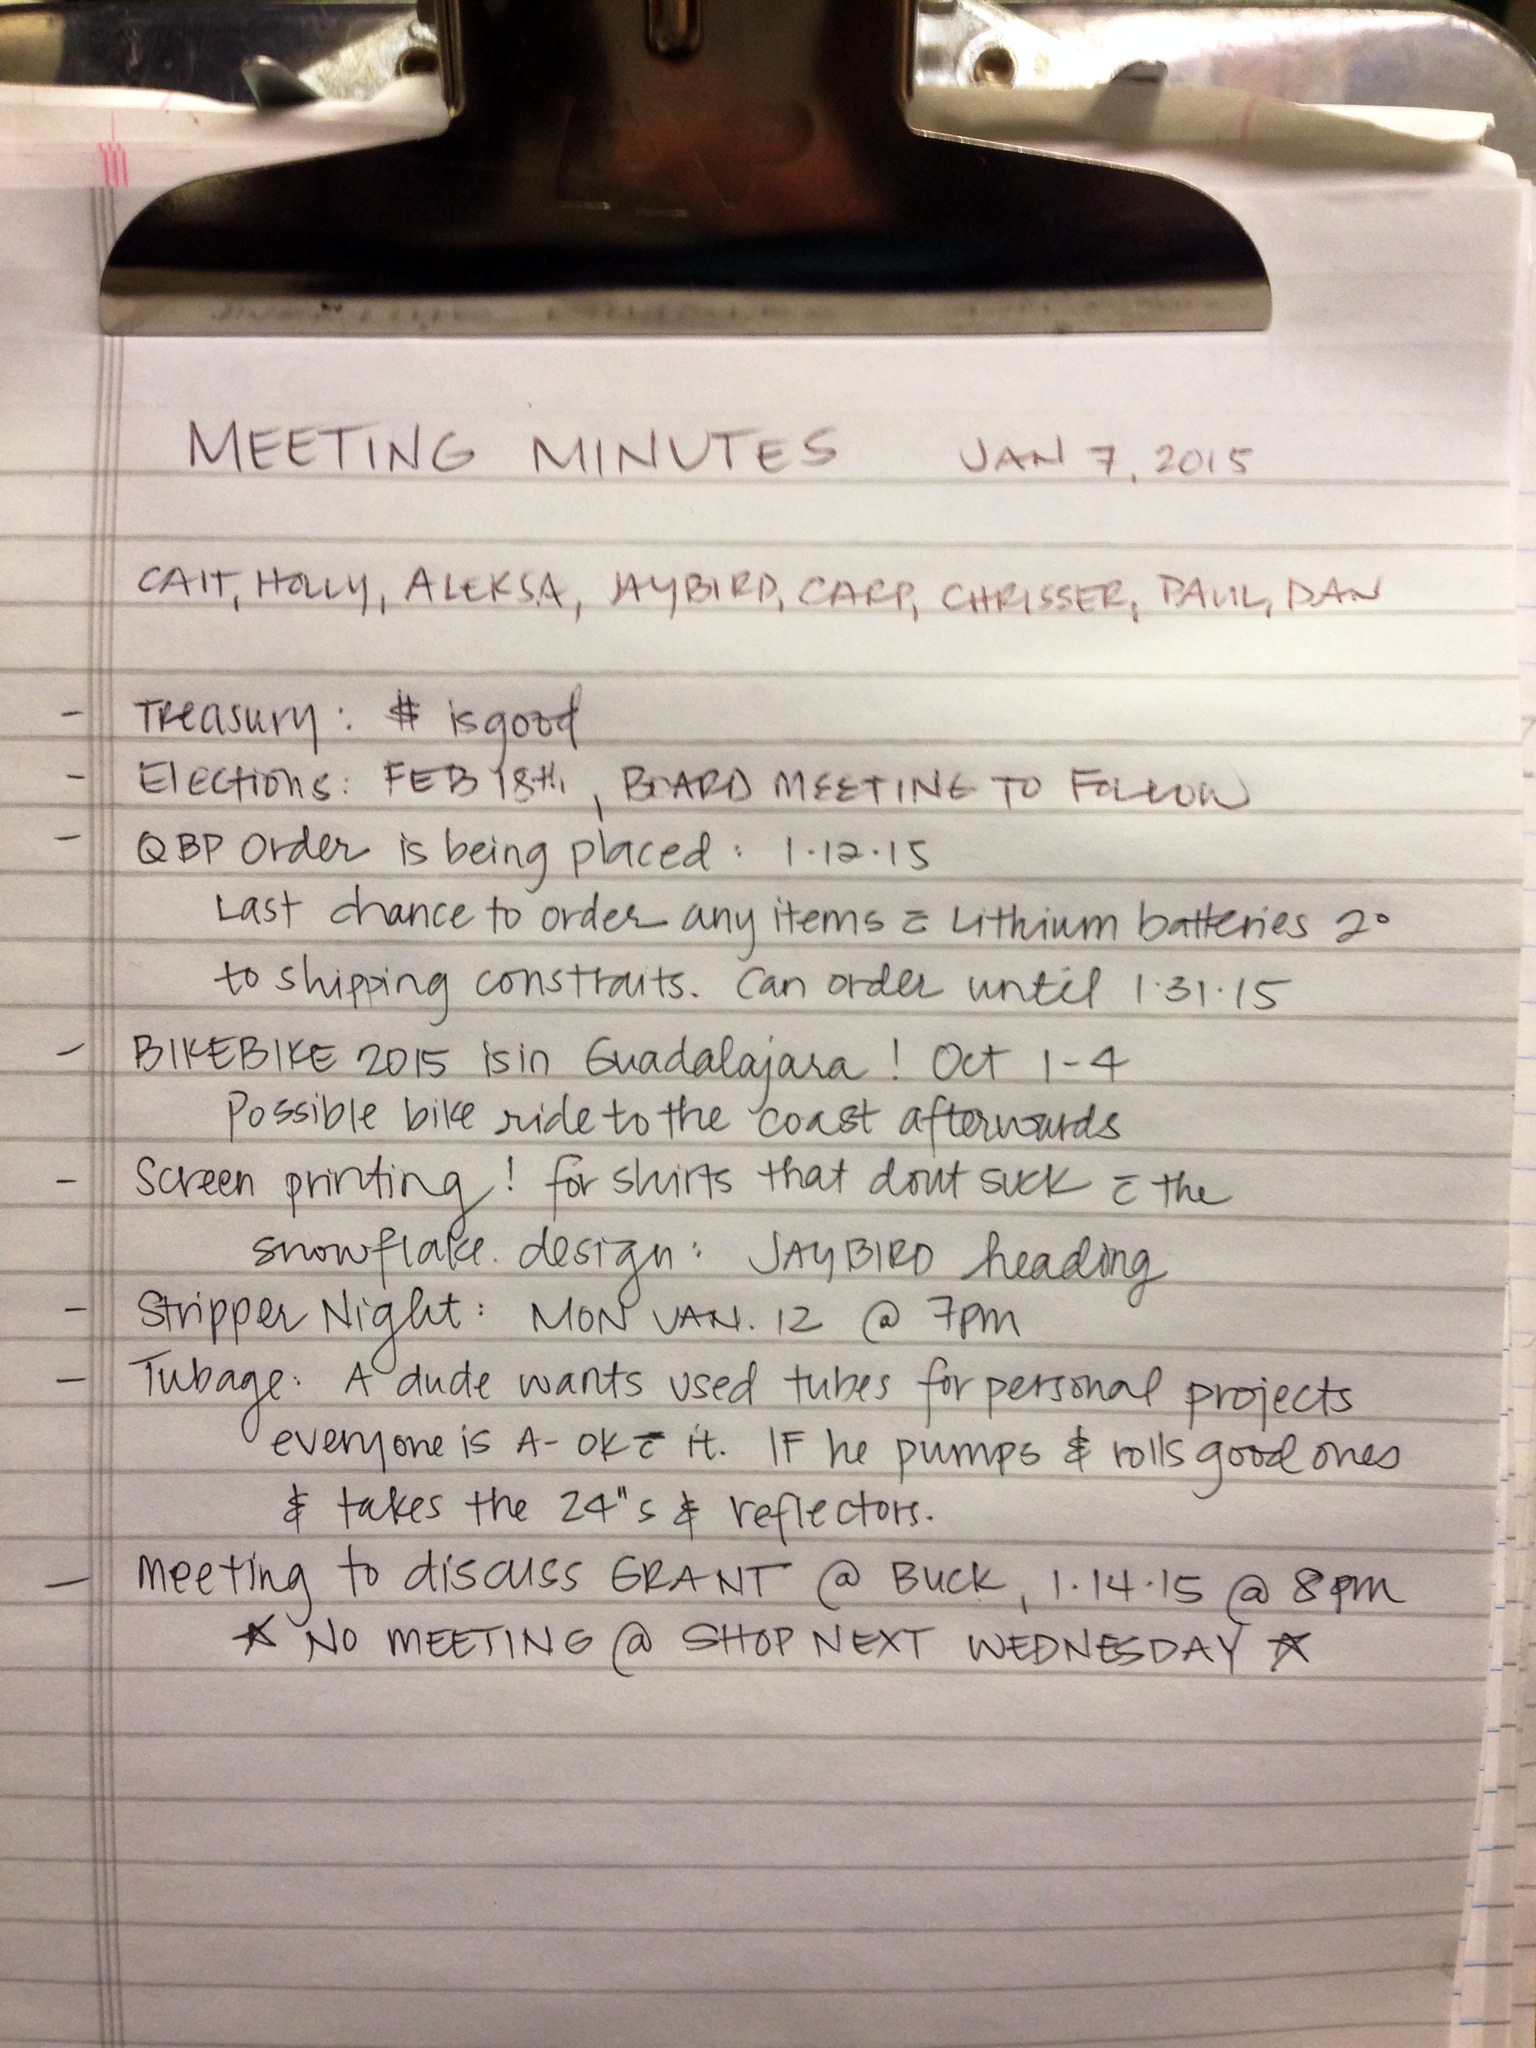 MEETING MINUTES JAN 7, 2015
CAIT, HOLLY, ALEKSA, JAYBIRD, CARP, CHRISSER, PAUL, DAN
- Treasury: $ is good
- Elections: FEB 18th, BOARD MEETING TO FOLLOW
- QBP order is being placed: 1.12.15
Last chance to order any items c̄ Lithium batteries 2°
to shipping constraits. Can order until 1.31.15
- BIKEBIKE 2015 is in Guadalajara! Oct 1-4
Possible bike ride to the coast afterwards
- Screen printing! for shirts that dont suck c̄ the
snowflake design: JAYBIRD heading
- Stripper Night: MON JAN. 12 @ 7pm
- Tubage: A dude wants used tubes for personal projects
everyone is A-OK c̄ it. IF he pumps & rolls good ones
& takes the 24"s & reflectors.
- Meeting to discuss GRANT @ BUCK, 1.14.15 @ 8pm
☆ NO MEETING @ SHOP NEXT WEDNESDAY ☆